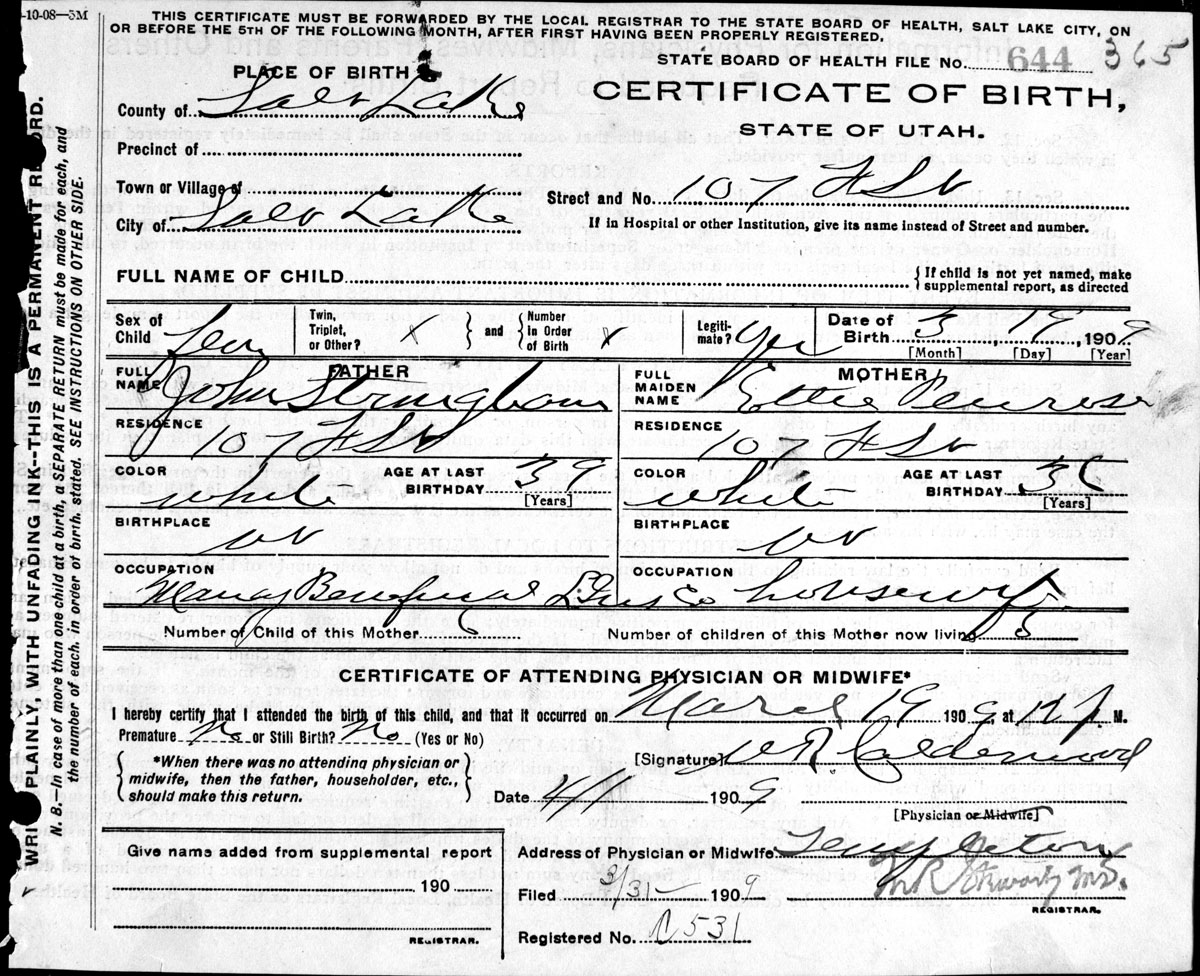 -10-08—5M
THIS CERTIFICATE MUST BE FORWARDED BY THE LOCAL REGISTRAR TO THE STATE BOARD OF HEALTH, SALT LAKE CITY, ON
OR BEFORE THE 5TH OF THE FOLLOWING MONTH, AFTER FIRST HAVING BEEN PROPERLY REGISTERED.
STATE BOARD OF HEALTH FILE No. 644 365
PLACE OF BIRTH
CERTIFICATE OF BIRTH,
STATE OF UTAH.
County of Salt Lake
Precinct of
Town or Village of
Street and No. 107 H St
City of Salt Lake
If in Hospital or other Institution, give its name instead of Street and number.
FULL NAME OF CHILD { If child is not yet named, make supplemental report, as directed
Sex of Child Fem Twin, Triplet, or Other? X } and { Number in Order of Birth X Legiti-mate? Yes Date of Birth 3, 19, 1909
[Month] [Day] [Year]
FATHER
MOTHER
FULL NAME John Stringham
FULL MAIDEN NAME Ettie Penrose
RESIDENCE 107 H St
RESIDENCE 107 H St
COLOR white AGE AT LAST BIRTHDAY 39 [Years]
COLOR white AGE AT LAST BIRTHDAY [Years]
BIRTHPLACE Ut
BIRTHPLACE Ut
OCCUPATION
OCCUPATION housewife
Number of Child of this Mother 6
Number of children of this Mother now living 5
CERTIFICATE OF ATTENDING PHYSICIAN OR MIDWIFE*
I hereby certify that I attended the birth of this child, and that it occurred on March 19 1909 at 12 M.
Premature No or Still Birth? No (Yes or No)
{ *When there was no attending physician or midwife, then the father, householder, etc., should make this return. }
[Signature] Calderwood
Date 1909
[Physician or Midwife]
Give name added from supplemental report
190
REGISTRAR.
Address of Physician or Midwife Templeton
Filed 3/31 1909
REGISTRAR.
Registered No. C531
WRITE PLAINLY, WITH UNFADING INK--THIS IS A PERMANENT RECORD.
N. B.—In case of more than one child at a birth, a SEPARATE RETURN must be made for each, and
the number of each, in order of birth, stated. SEE INSTRUCTIONS ON OTHER SIDE.